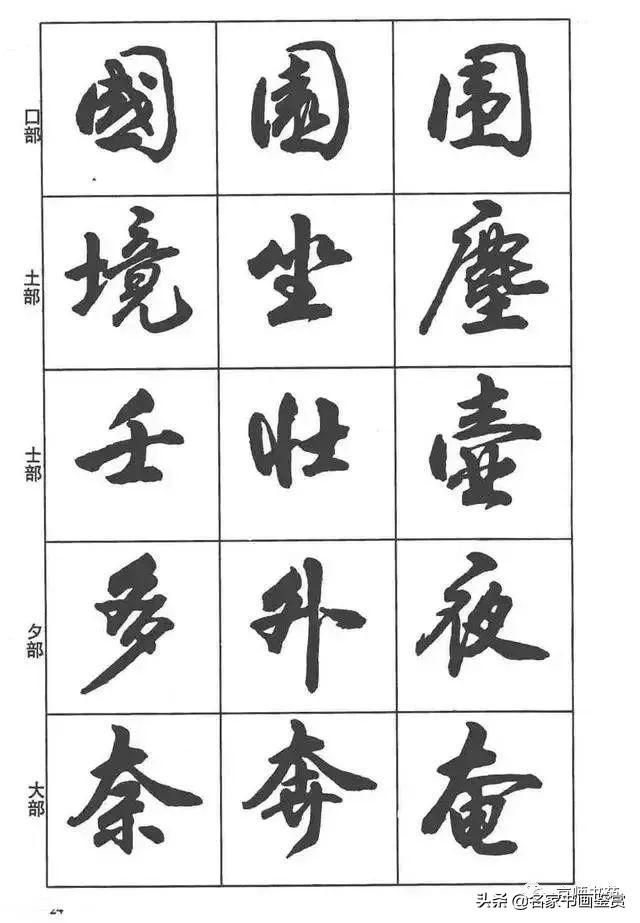 口部 國 園 围
土部 境 坐 塵
士部 壬 壮 壺
夕部 多 外 夜
大部 奈 奔 奄
24
头条 @名家书画鉴赏